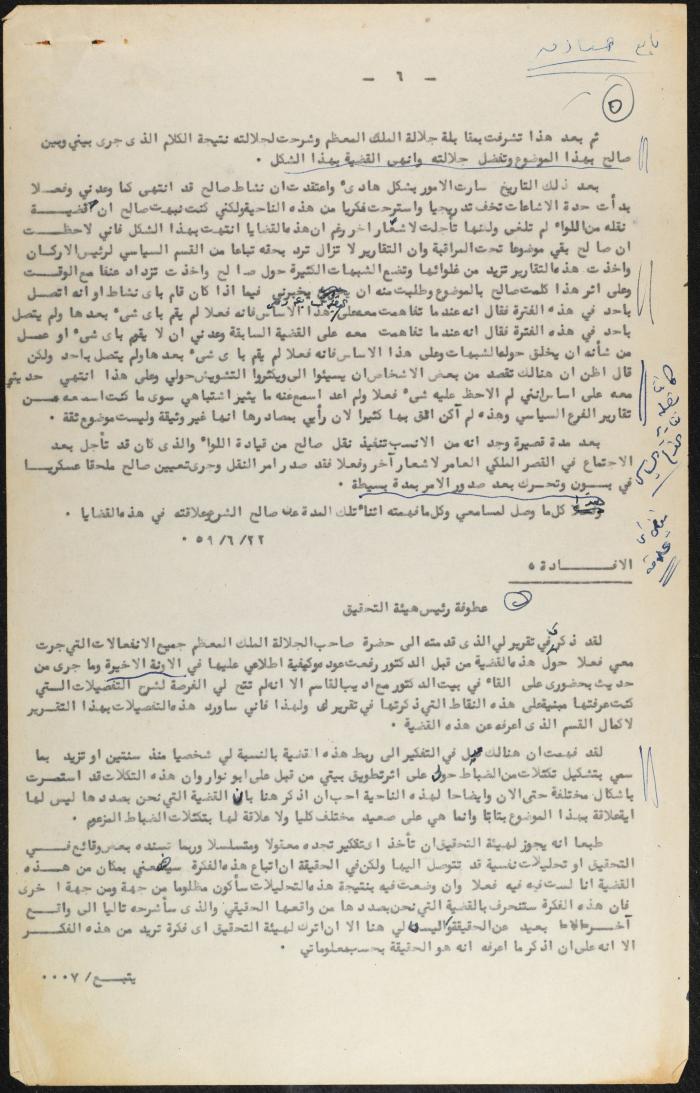 تابع
- ٦ -
٥
ثم بعد هذا تشرفت بمقابلة جلالة الملك المعظم وشرحت لجلالته نتيجة الكلام الذى جرى بيني وبين
صالح بهذا الموضوع وتفضل جلالته وانهى القضية بهذا الشكل ٠
بعد ذلك التاريخ سارت الامور بشكل هادىء واعتقدت ان نشاط صالح قد انتهى كما وعدني وفعــلا
بدأت حدة الاشاعات تخف تدريجيا واسترحت فكريا من هذه الناحية ولكني كنت نبهت صالح ان قضيــة
نقله من اللواء لم تلغى ولكنها تأجلت لاشعار اخر رغم ان هذه القضايا انتهت بهذا الشكل فاني لاحظــت
ان صالح بقي موضوعا تحت المراقبة وان التقارير لا تزال ترد بحقه تباعا من القسم السياسي لرئيس الاركان
واخذت هذه التقارير تزيد من غلوائها وتضع الشبهات الكثيرة حول صالح واخذت تزداد عنفا مع الوقــت
وعلى اثر هذا كلمت صالح بالموضوع وطلبت منه ان يخبرني فيما اذا كان قام باى نشاط او انه اتصل
باحد في هذه الفترة فقال انه عندما تفاهمت معه على هذا الاساس فانه فعلا لم يقم باى شىء بعدها ولم يتصل
باحد في هذه الفترة فقال انه عندما تفاهمت معه على القضية السابقة وعدني ان لا يقوم باى شىء او عمــل
من شأنه ان يخلق حوله الشبهات وعلى هذا الاساس فانه فعلا لم يقم باى شىء بعدها ولم يتصل باحد ولكن
قال اظن ان هنالك تقصد من بعض الاشخاص ان يسيئوا الى ويكثروا التشويش حولي وعلى هذا انتهى حديثي
معه على اساس انني لم الاحظ عليه شىء فعلا ولم اعد اسمع عنه ما يثير اشتباهي سوى ما كنت اسمعه عــن
تقارير الفرع السياسي وهذه لم آكن اثق بها كثيرا لان رأيي بمصادرها انها غير وثيقة وليست موضوع ثقة ٠
بعد مدة قصيرة وجد انه من الانسب تنفيذ نقل صالح من قيادة اللواء والذى كان قد تأجل بعد
الاجتماع في القصر الملكي العامر لاشعار آخر وفعلا فقد صدر امر النقل وجرى تعيين صالح ملحقا عسكريــا
في بــون وتحرك بعد صدور الامر بمدة بسيطة ٠
هذا كل ما وصل لمسامعي وكل ما فهمته اثناء تلك المدة عن صالح الشرع وعلاقته في هذه القضايا ٠
٥٩/٦/٢٢ ٠
الافــــادة ٥
عطوفة رئيس هيئة التحقيق
لقد ذكرت في تقريرى الذى قدمته الى حضرة صاحب الجلالة الملك المعظم جميع الانفعالات التي جرت
معي فعلا حول هذه القضية من قبل الدكتور رفعت عوده وكيفية اطلاعي عليها في الاونة الاخيرة وما جرى من
حديث بحضورى على القاء في بيت الدكتور مع اديب القاسم الا انه لم تتح لي الفرصة لشرح التفصيلات الــتي
كنت عرفتها مبنية على هذه النقاط التي ذكرتها في تقريرى ولهذا فاني ساورد هذه التفصيلات بهذا التقريــر
لاكمال القسم الذى اعرفه عن هذه القضية ٠
لقد فهمت ان هنالك ميل في التفكير الى ربط هذه القضية بالنسبة لي شخصيا منذ سنتين او تزيد بما
سمي بتشكيل تكتلات من الضباط حول على اثر تطويق بيتي من قبل على ابو نوار وان هذه التكتلات قد استمرت
باشكال مختلفة حتى الان وايضاحا لهذه الناحية احب ان اذكر هنا بان القضية التي نحن بصددها ليس لها
اية علاقة بهذا الموضوع بتاتا وانما هي على صعيد مختلف كليا ولا علاقة لها بتكتلات الضباط المزعوم ٠
طبعا انه يجوز لهيئة التحقيق ان تأخذ اى تفكير تجده معقولا ومتسلسلا وربما تسنده بعض وقائع فــي
التحقيق او تحليلات نفسية قد تتوصل اليها ولكن في الحقيقة ان اتباع هذه الفكرة سيضعني بمكان من هــذه
القضية انا لست فيه فعلا وان وضعت فيه بنتيجة هذه التحليلات سأكون مظلوما من جهة ومن جهة اخرى
فان هذه الفكرة ستنحرف بالقضية التي نحن بصددها من واقعها الحقيقي والذى سأشرحه تاليا الى واقــع
آخر بعيد عن الحقيقة وليس لي هنا الا ان اترك لهيئة التحقيق اى فكرة تريد من هذه الفكــر
الا انه على ان اذكر ما اعرفه انه هو الحقيقة بحسب معلوماتي ٠
يتبــع / ٠٠٠٧